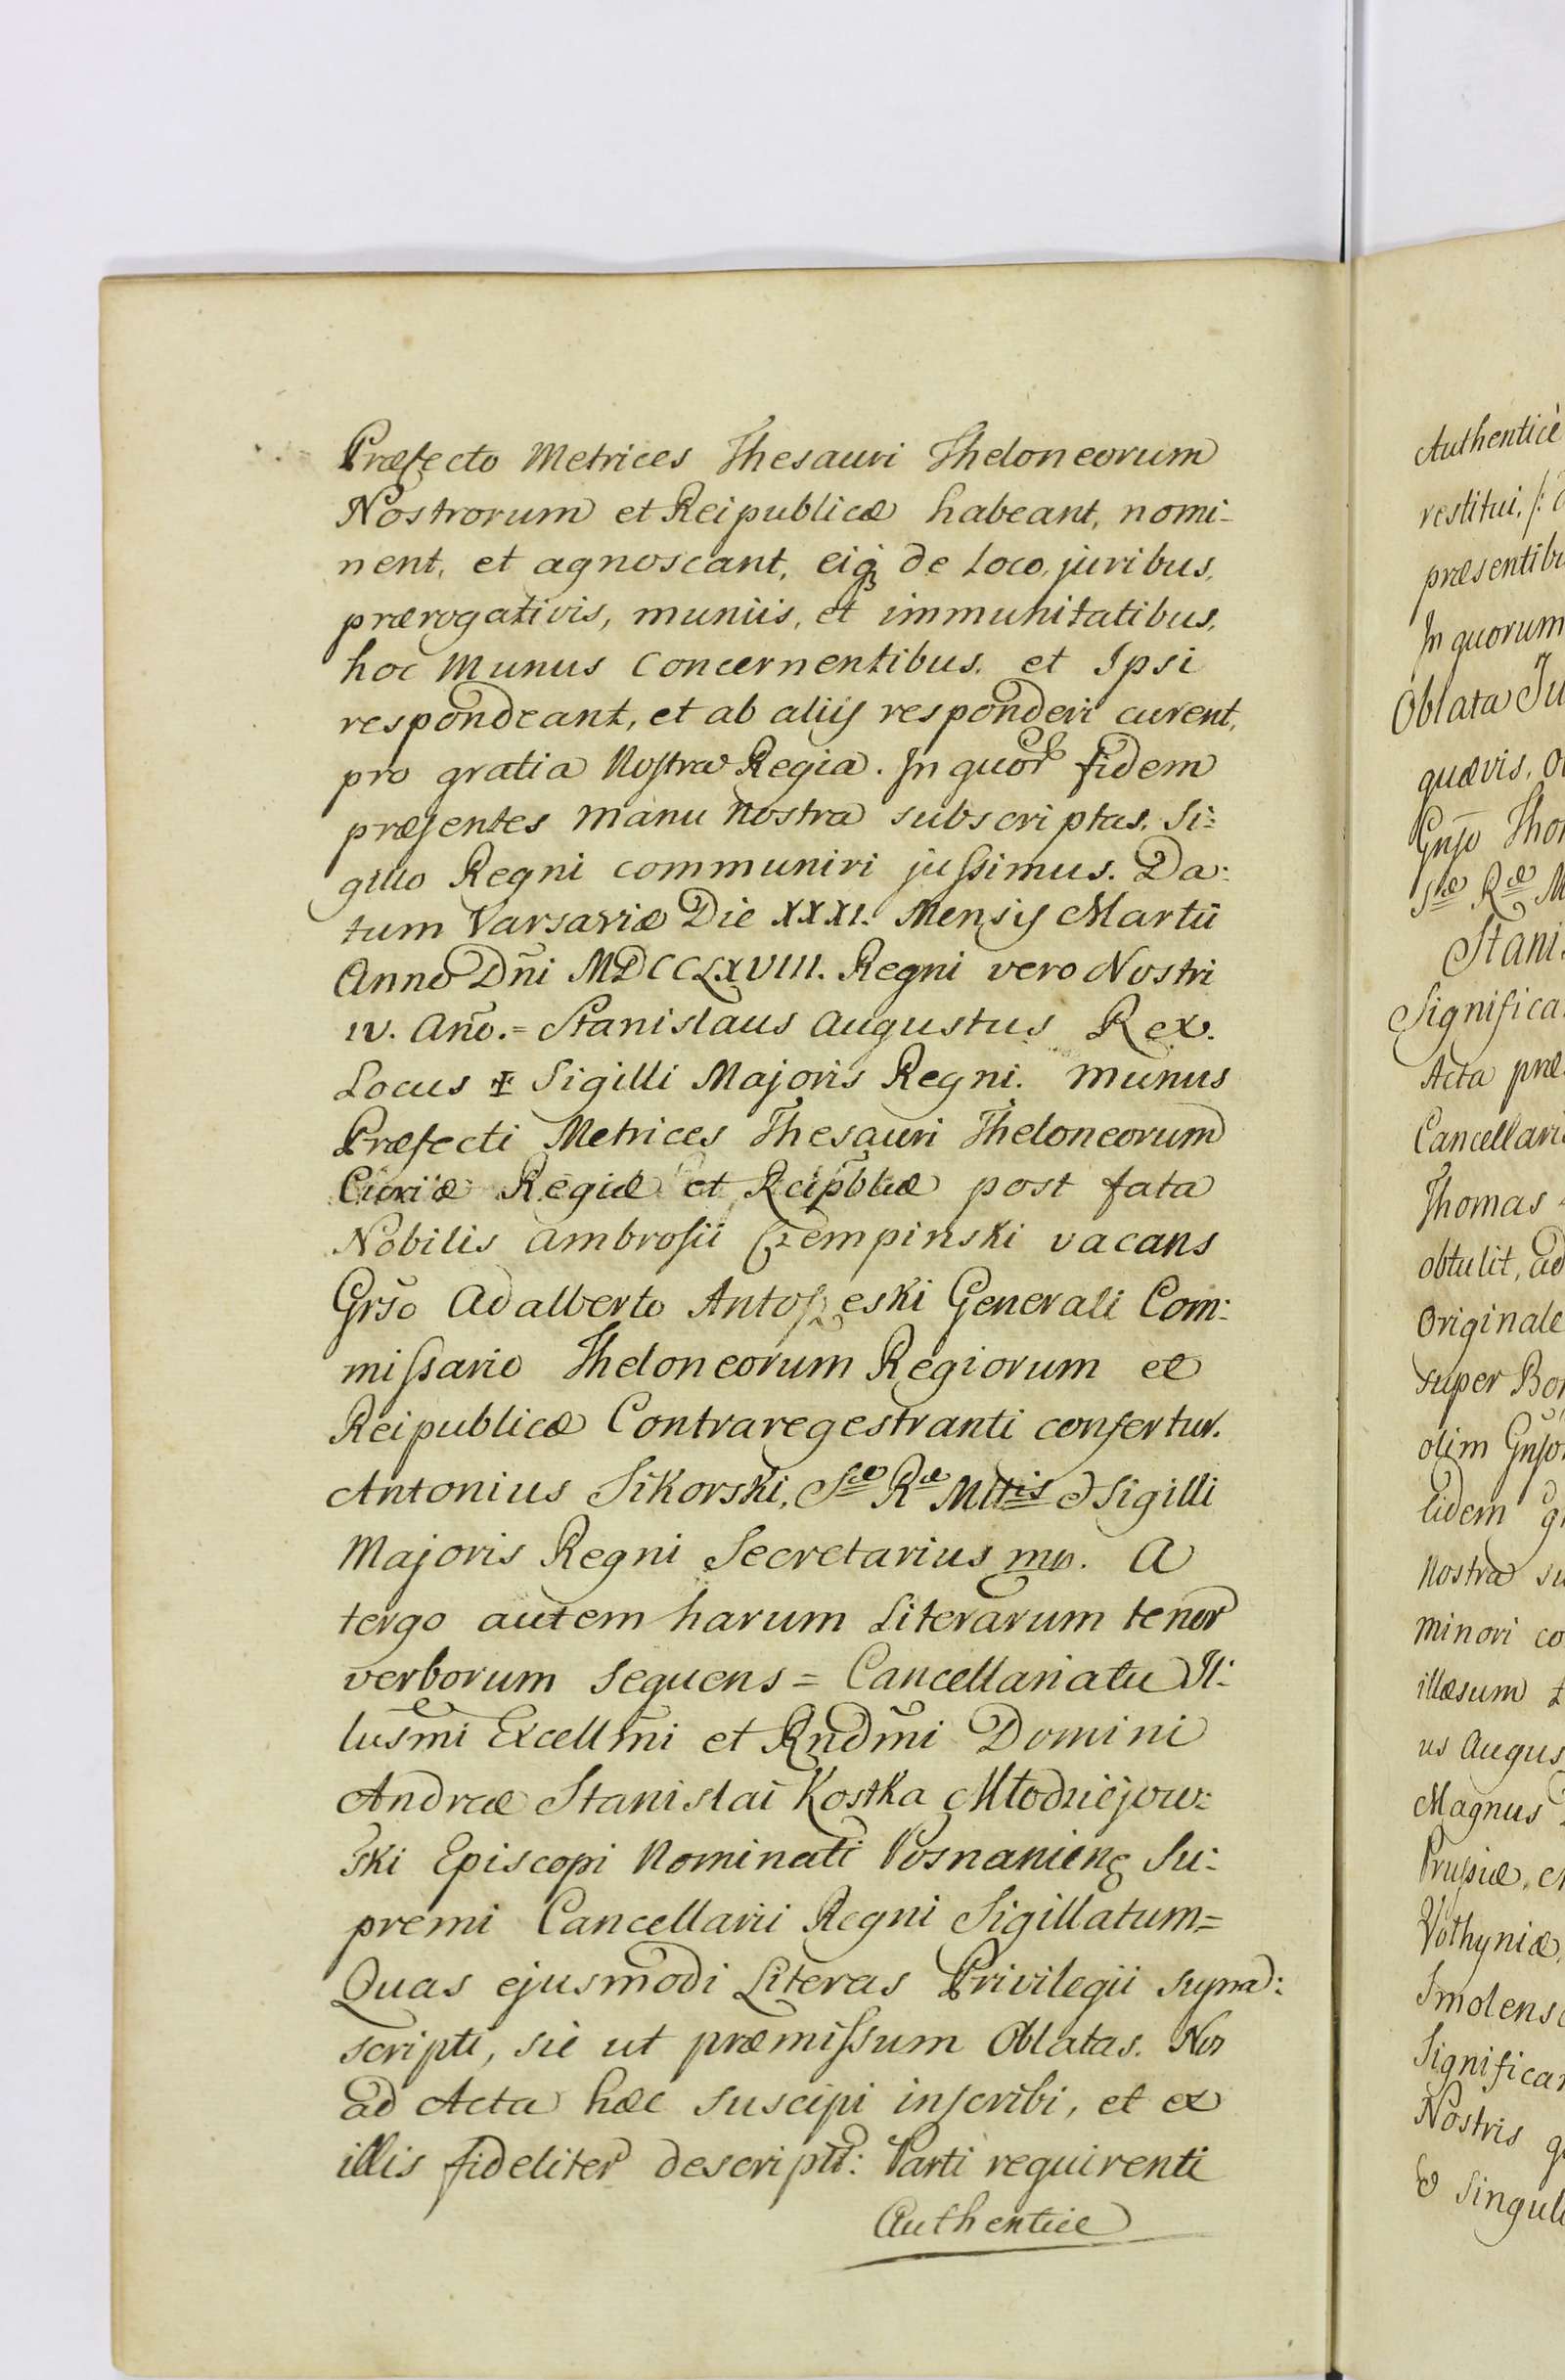 Præfecto Metrices Thesauri Theloneorum
Nostrorum et Reipublicæ habeant, nomi-
nent, et agnoscant, eiq́ de loco, juribus,
prærogativis, muniis, et immunitatibus,
hoc Munus concernentibus, et Ipsi
respondeant, et ab aliis responderi curent,
pro gratia Nostra Regia. In quor fidem
præsentes manu Nostra subscriptas, Si=
gillo Regni communiri jussimus. Da:
tum Varsaviæ Die XXXI. Mensis Martii
Anno Dn̄i MDCCLXVIII. Regni vero Nostri
IV. Año.= Stanislaus Augustus Rex.
Locus ✠ Sigilli Majoris Regni. Munus
Præfecti Metrices Thesauri Theloneorum
Curiæ Regiæ et Reipb̃læ post fata
Nobilis Ambrosii Czempinski vacans
Grſo Adalberto Antoszeski Generali Com:
missario Theloneorum Regiorum et
Reipublicæ Contraregestranti confertur.
Antonius Sikorski, Sæ Ræ Mttis & Sigilli
Majoris Regni Secretarius mp. A
tergo autem harum Literarum tenor
verborum sequens = Cancellariatu Il:
lusm̃i Excellm̃i et Rndm̃i Domini
Andreæ Stanislai Kostka Młodziejow:
ski Episcopi Nominati Posnanieng Su:
premi Cancellarii Regni Sigillatum=
Quas ejusmodi Literas Privilegii supra:
scripti, sic ut præmissum Oblatas. Nos
ad Acta hæc suscipi inscribi, et ex
illis fideliter descriptt: Parti requirenti
Authentice
Authenticè
restitui,
In quorum
Oblata
quævis,
Sæ Ræ
Significa
Acta præ
Cancellari
Thomas
obtulit, ad
Originale
super
olim
Nostra su
minori co
illæsum
us Augus
Magnus
Prussiæ,
Smolens
Significa
Nostris
& singul